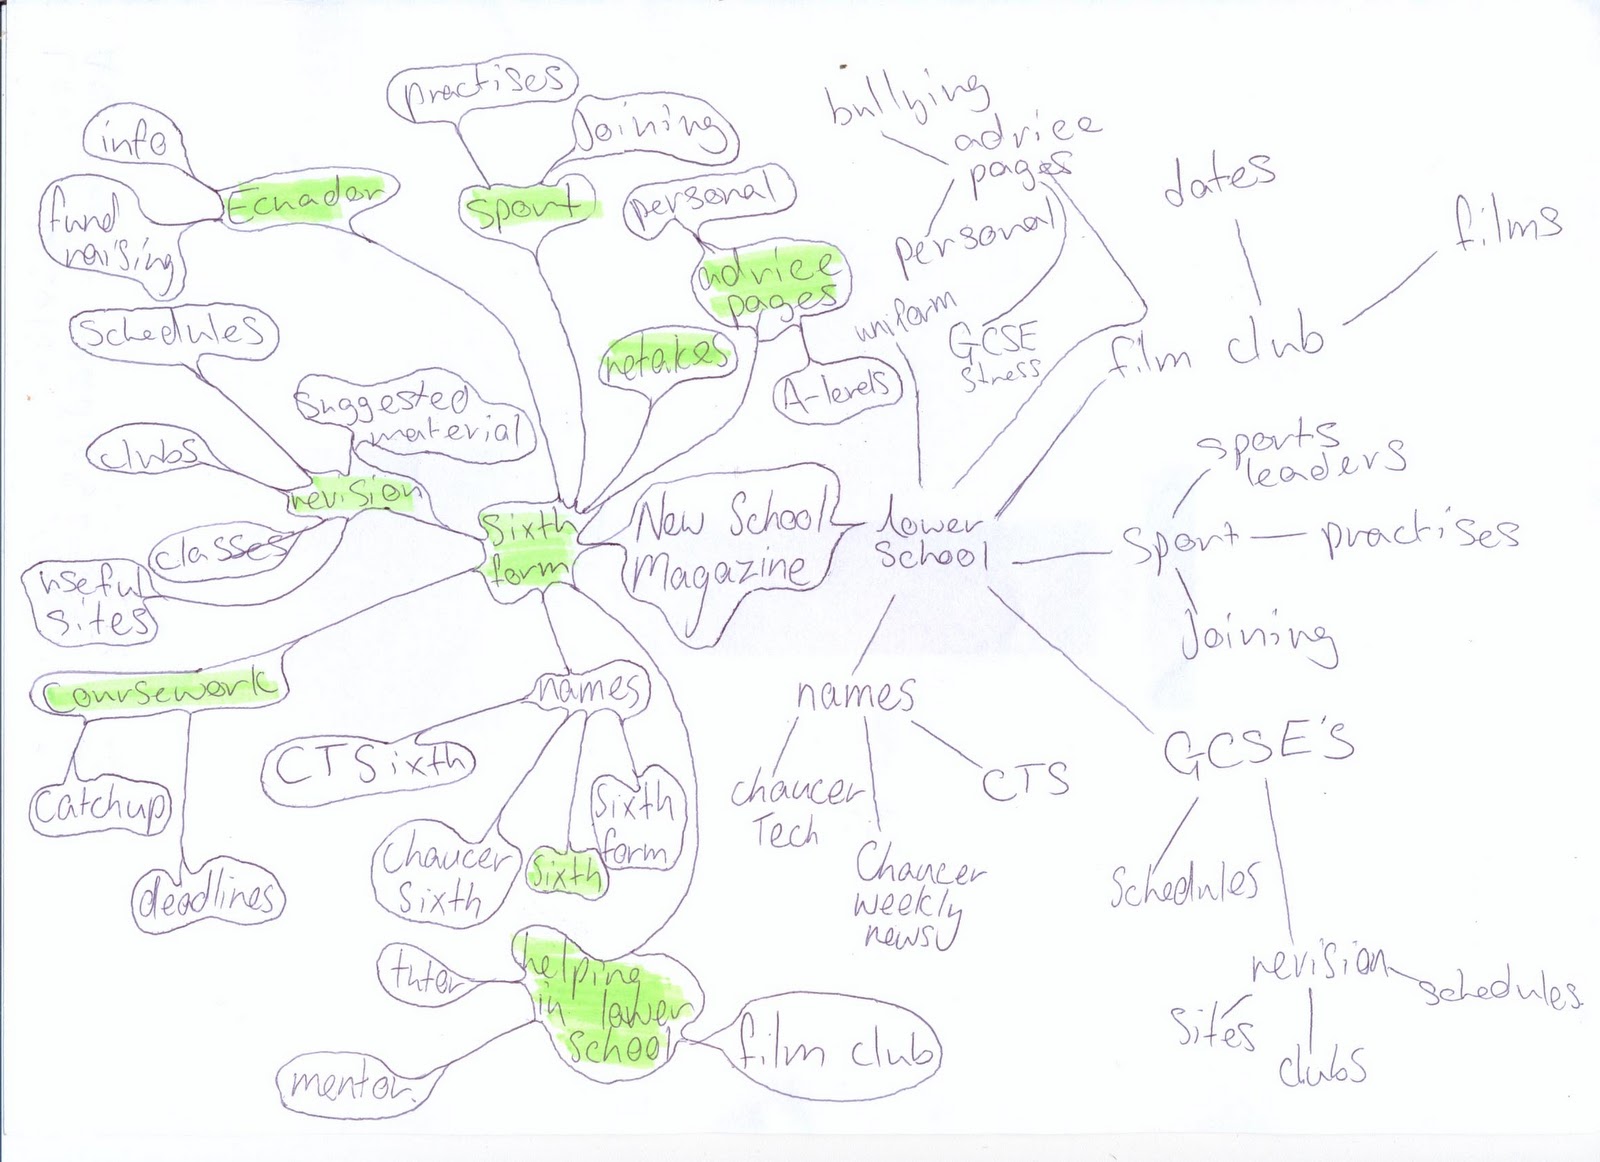 practises
Joining
info
Ecuador
fund
raising
sport
personal
advice
pages
retakes
A-levels
schedules
suggested
material
clubs
revision
classes
useful
sites
Sixth
form
New School
Magazine
Coursework
Catchup
deadlines
names
CTSixth
Chaucer
Sixth
Sixth
Sixth
form
helping
in lower
school
tutor
mentor
film club
bullying
advice
pages
personal
uniform
GCSE
stress
dates
films
film club
lower
school
sports
leaders
sport
practises
Joining
names
chaucer
Tech
Chaucer
weekly
news
CTS
GCSE's
Schedules
revision
schedules
Sites
clubs